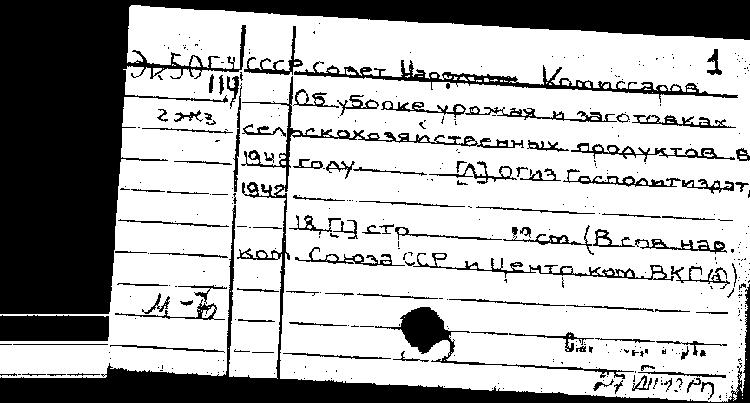 1
Эк50Г-4 СССР. Совет Народных Комиссаров.
114
Об уборке урожая и заготовках
2 экз
сельскохозяйственных продуктов в
1942 году. [Л], ОГИЗ Госполитиздат,
1942.
18, [1] стр. 19 cm. (В сов. нар.
ком. Союза ССР и Центр. ком. ВКП(б))
М-
27 VIII 43